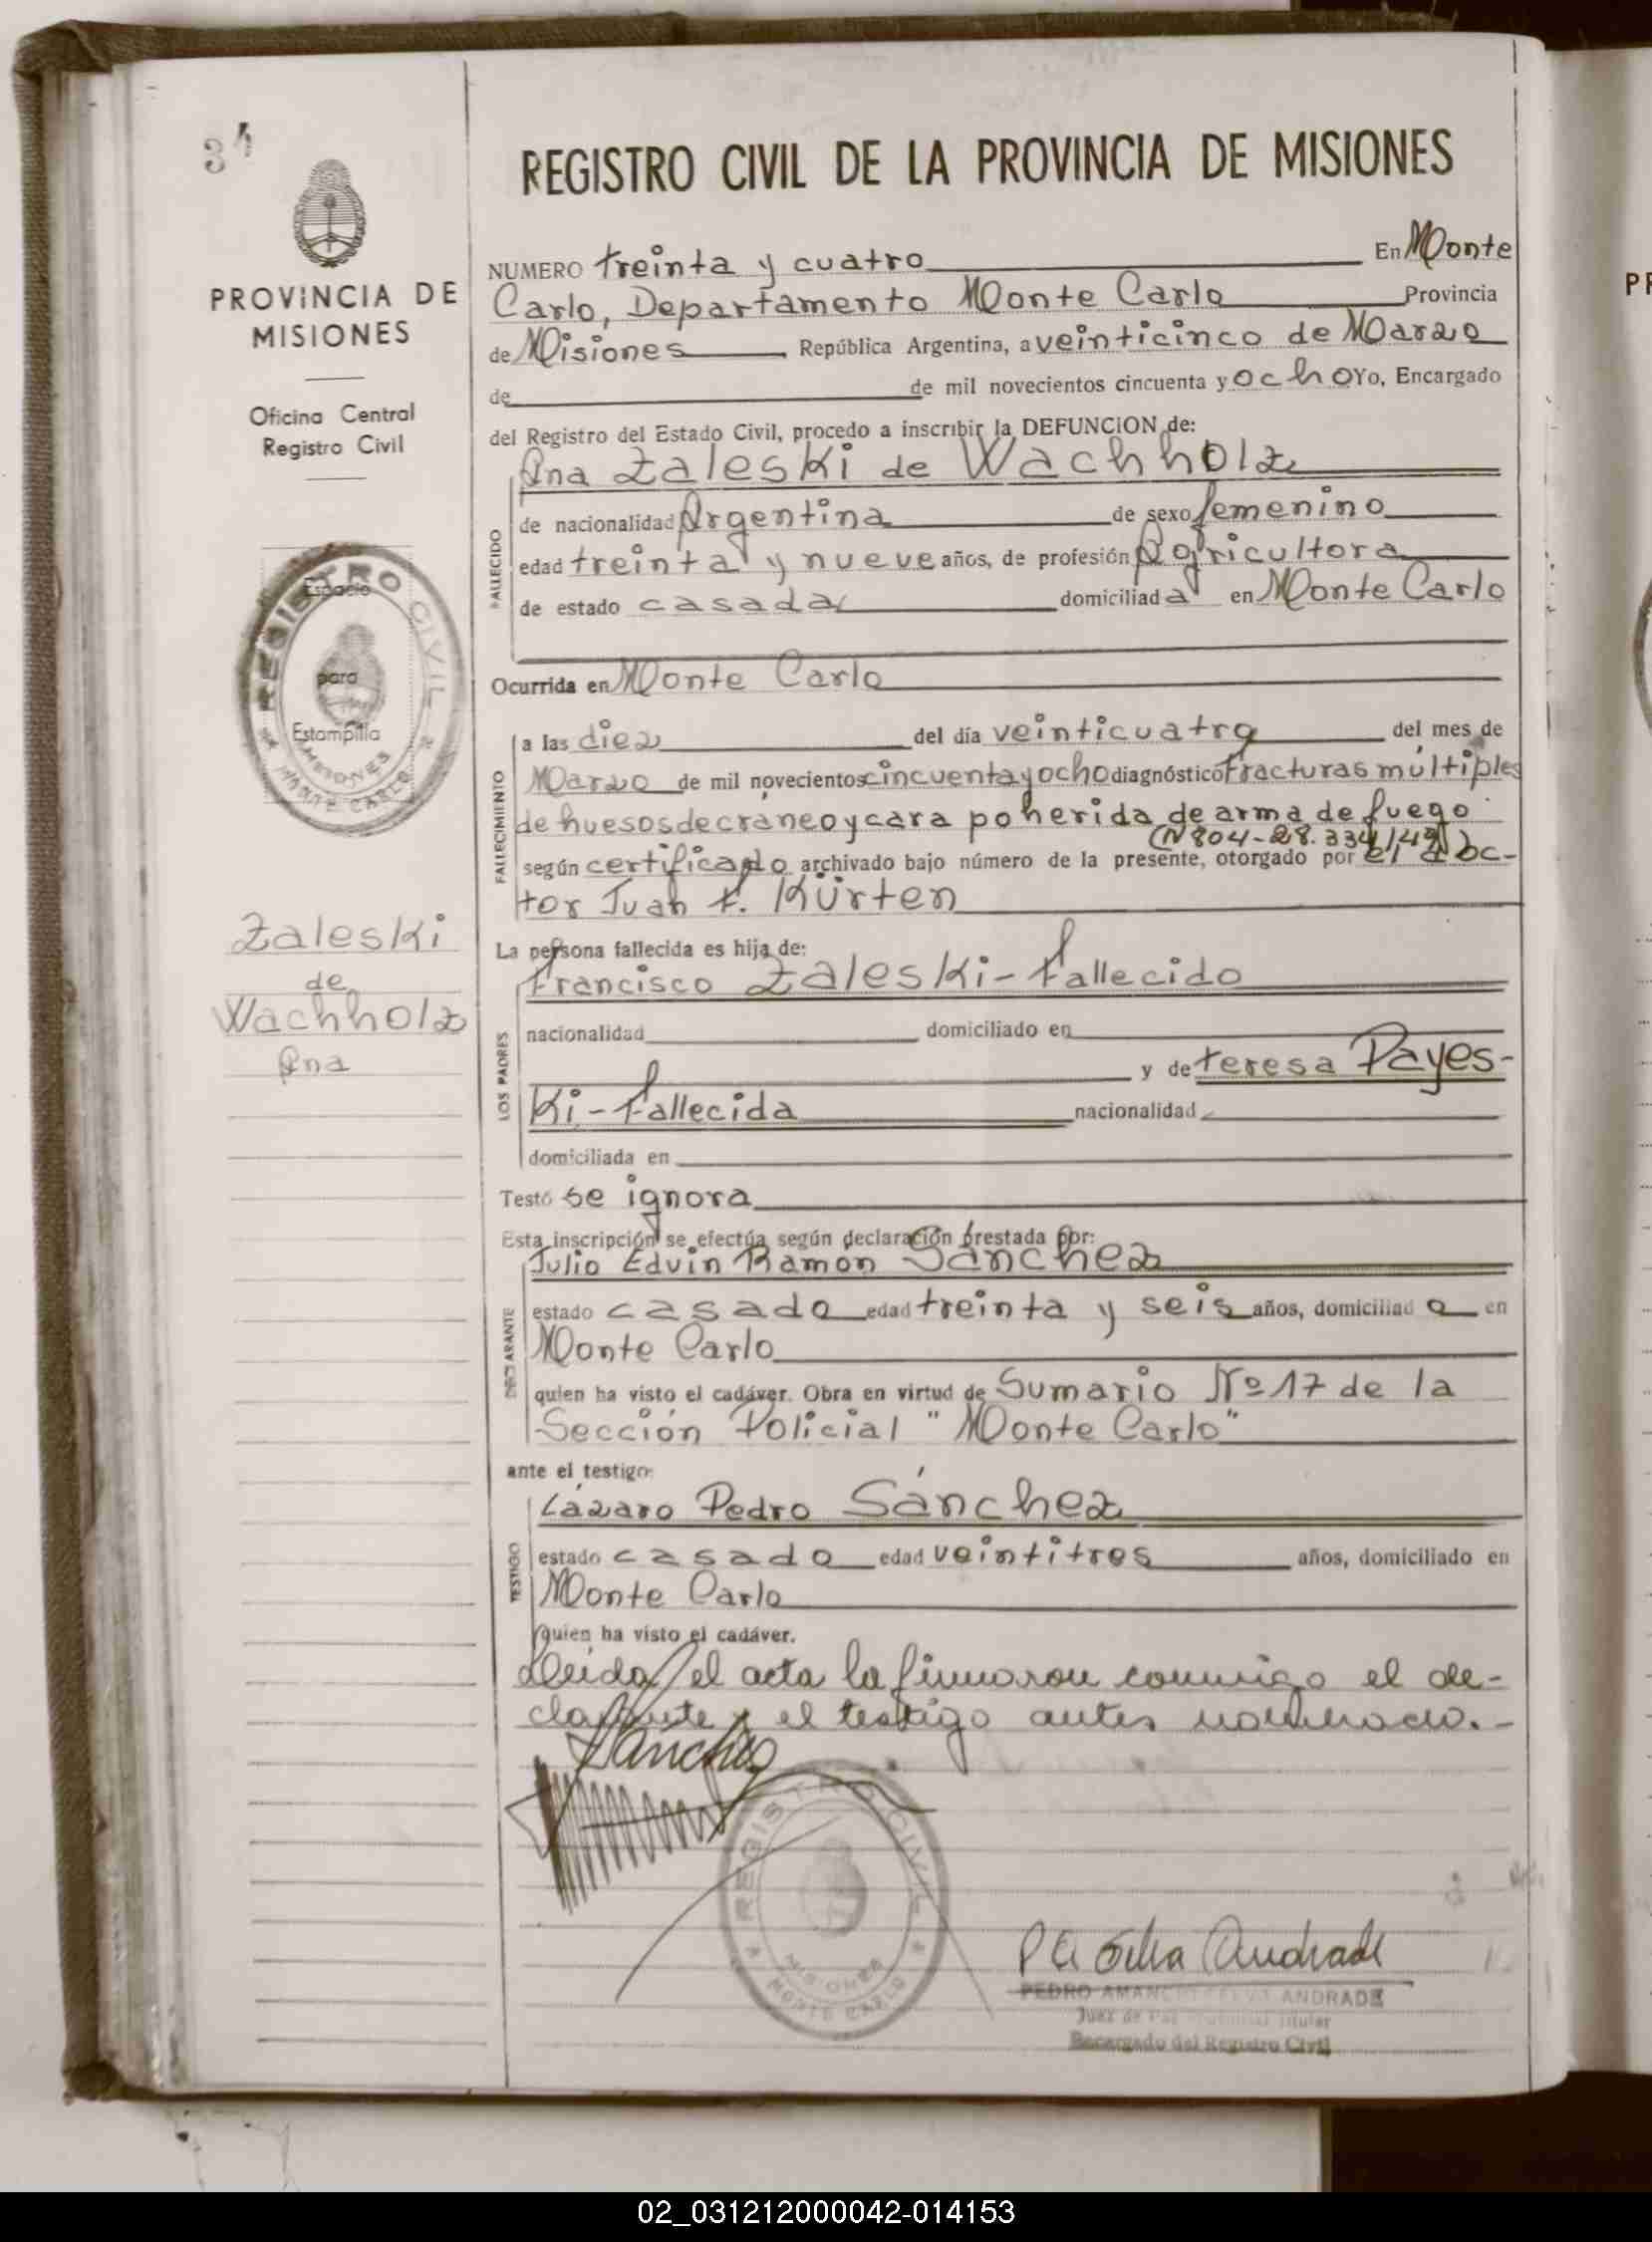 34
PROVINCIA DE
MISIONES
Oficina Central
Registro Civil
Espacio
para
Estampilla
REGISTRO CIVIL
MISIONES
MONTE CARLO
Zaleski
de
Wachholz
Ana
REGISTRO CIVIL DE LA PROVINCIA DE MISIONES
NUMERO treinta y cuatro En Monte
Carlo, Departamento Monte Carlo Provincia
de Misiones República Argentina, a veinticinco de Marzo
de de mil novecientos cincuenta y ocho Yo, Encargado
del Registro del Estado Civil, procedo a inscribir la DEFUNCION de:
Ana Zaleski de Wachholz
FALLECIDO
de nacionalidad Argentina de sexo femenino
edad treinta y nueve años, de profesión Agricultora
de estado casada domiciliada en Monte Carlo
Ocurrida en Monte Carlo
FALLECIMIENTO
a las diez del día veinticuatro del mes de
Marzo de mil novecientos cincuenta y ocho diagnóstico Fracturas múltiples
de huesos de craneo y cara po herida de arma de fuego
(N804-28.334/49)
según certificado archivado bajo número de la presente, otorgado por el doc-
tor Juan F. Kürten
La persona fallecida es hija de:
LOS PADRES
Francisco Zaleski - Fallecido
nacionalidad domiciliado en
y de Teresa Payes-
Ki - Fallecida nacionalidad
domiciliada en
Testó se ignora
Esta inscripción se efectúa según declaración prestada por:
DECLARANTE
Julio Edvin Ramon Sánchez
estado casado edad treinta y seis años, domiciliado en
Monte Carlo
quien ha visto el cadáver. Obra en virtud de Sumario Nº 17 de la
Sección Policial "Monte Carlo"
ante el testigo:
TESTIGO
Lázaro Pedro Sánchez
estado casado edad veintitres años, domiciliado en
Monte Carlo
quien ha visto el cadáver.
Leída el acta la firmaron conmigo el de-
clarante y el testigo antes nombrado.-
Sánchez
REGISTRO CIVIL
MISIONES
MONTE CARLO
P A Silva Andrade
PEDRO AMANCIO SILVA ANDRADE
Juez de Paz Titular
Encargado del Registro Civil
02_031212000042-014153